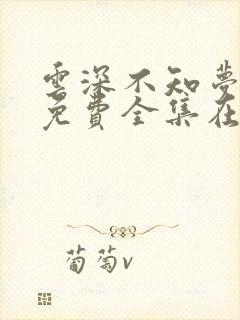 雲深不知夢
免費全集在
葡萄v